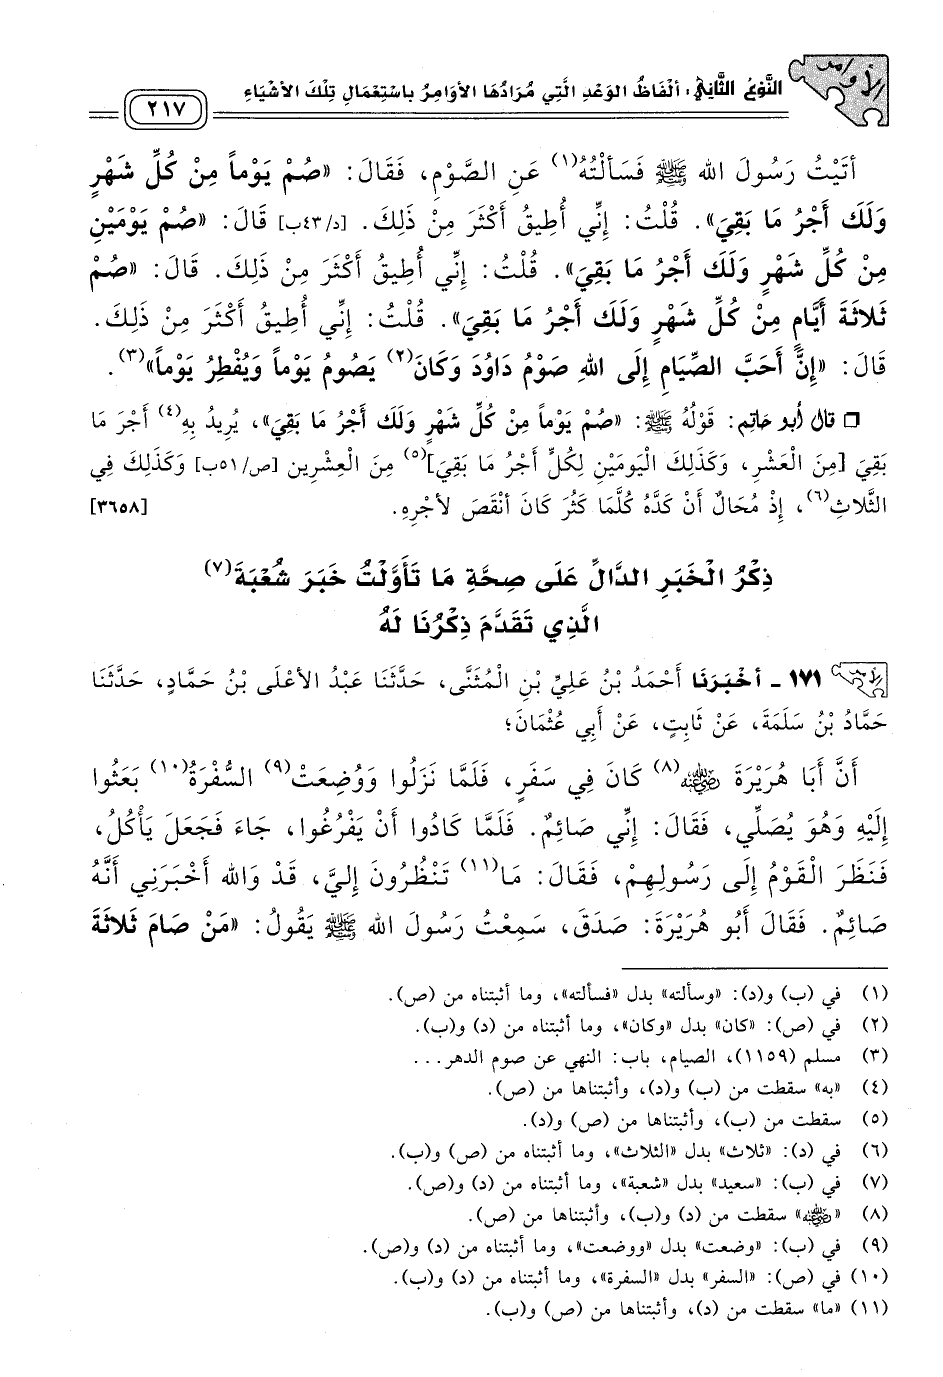 الأوامر
النَّوْعُ الثَّانِي: ألْفَاظُ الوَعْدِ الَّتِي مُرَادُهَا الأَوَامِرُ بِاسْتِعْمَالِ تِلْكَ الأَشْيَاءِ
٢١٧
أَتَيْتُ رَسُولَ اللهِ ﷺ فَسَألْتُهُ(١) عَنِ الصَّوْمِ، فَقَالَ: «صُمْ يَوْماً مِنْ كُلِّ شَهْرٍ
وَلَكَ أَجْرُ مَا بَقِيَ». قُلْتُ: إِنِّي أُطِيقُ أَكْثَرَ مِنْ ذَلِكَ. [د/٤٣ب] قَالَ: «صُمْ يَوْمَيْنِ
مِنْ كُلِّ شَهْرٍ وَلَكَ أَجْرُ مَا بَقِيَ». قُلْتُ: إِنِّي أُطِيقُ أَكْثَرَ مِنْ ذَلِكَ. قَالَ: «صُمْ
ثَلاثَةَ أَيَّامٍ مِنْ كُلِّ شَهْرٍ وَلَكَ أَجْرُ مَا بَقِيَ». قُلْتُ: إِنِّي أُطِيقُ أَكْثَرَ مِنْ ذَلِكَ.
قَالَ: «إِنَّ أَحَبَّ الصِّيَامِ إِلَى اللهِ صَوْمُ دَاوُدَ وَكَانَ(٢) يَصُومُ يَوْماً وَيُفْطِرُ يَوْماً»(٣).
❒ قال أبو حاتِم: قَوْلُهُ ﷺ: «صُمْ يَوْماً مِنْ كُلِّ شَهْرٍ وَلَكَ أَجْرُ مَا بَقِيَ»، يُرِيدُ بِهِ(٤) أَجْرَ مَا
بَقِيَ [مِنَ الْعَشْرِ، وَكَذَلِكَ الْيَوْمَيْنِ لِكُلِّ أَجْرُ مَا بَقِيَ](٥) مِنَ الْعِشْرِين [ص/٥١ب] وَكَذَلِكَ فِي
الثَّلاثِ(٦)، إِذْ مُحَالٌ أَنْ كَدَّهُ كُلَّمَا كَثُرَ كَانَ أنْقَصَ لأجْرِهِ. [٣٦٥٨]
ذِكْرُ الْخَبَرِ الدَّالِّ عَلَى صِحَّةِ مَا تَأَوَّلْتُ خَبَرَ شُعْبَةَ(٧)
الَّذِي تَقَدَّمَ ذِكْرُنَا لَهُ
١٧١ - أَخْبَرَنَا أَحْمَدُ بْنُ عَلِيِّ بْنِ الْمُثَنَّى، حَدَّثَنَا عَبْدُ الأعْلَى بْنُ حَمَّادٍ، حَدَّثَنَا
حَمَّادُ بْنُ سَلَمَةَ، عَنْ ثَابِتٍ، عَنْ أَبِي عُثْمَانَ؛
أَنَّ أَبَا هُرَيْرَةَ رضي الله عنه(٨) كَانَ فِي سَفَرٍ، فَلَمَّا نَزَلُوا وَوُضِعَتْ(٩) السُّفْرَةُ(١٠) بَعَثُوا
إِلَيْهِ وَهُوَ يُصَلِّي، فَقَالَ: إِنِّي صَائِمٌ. فَلَمَّا كَادُوا أَنْ يَفْرُغُوا، جَاءَ فَجَعَلَ يَأْكُلُ،
فَنَظَرَ الْقَوْمُ إِلَى رَسُولِهِمْ، فَقَالَ: مَا(١١) تَنْظُرُونَ إِلَيَّ، قَدْ وَاللهِ أَخْبَرَنِي أَنَّهُ
صَائِمٌ. فَقَالَ أَبُو هُرَيْرَةَ: صَدَقَ، سَمِعْتُ رَسُولَ اللهِ ﷺ يَقُولُ: «مَنْ صَامَ ثَلاثَةَ
(١) في (ب) و(د): «وسألته» بدل «فسألته»، وما أثبتناه من (ص).
(٢) في (ص): «كان» بدل «وكان»، وما أثبتناه من (د) و(ب).
(٣) مسلم (١١٥٩)، الصيام، باب: النهي عن صوم الدهر...
(٤) «به» سقطت من (ب) و(د)، وأثبتناها من (ص).
(٥) سقطت من (ب)، وأثبتناها من (ص) و(د).
(٦) في (د): «ثلاث» بدل «الثلاث»، وما أثبتناه من (ص) و(ب).
(٧) في (ب): «سعيد» بدل «شعبة»، وما أثبتناه من (د) و(ص).
(٨) «رضي الله عنه» سقطت من (د) و(ب)، وأثبتناها من (ص).
(٩) في (ب): «وضعت» بدل «ووضعت»، وما أثبتناه من (د) و(ص).
(١٠) في (ص): «السفر» بدل «السفرة»، وما أثبتناه من (د) و(ب).
(١١) «ما» سقطت من (د)، وأثبتناها من (ص) و(ب).